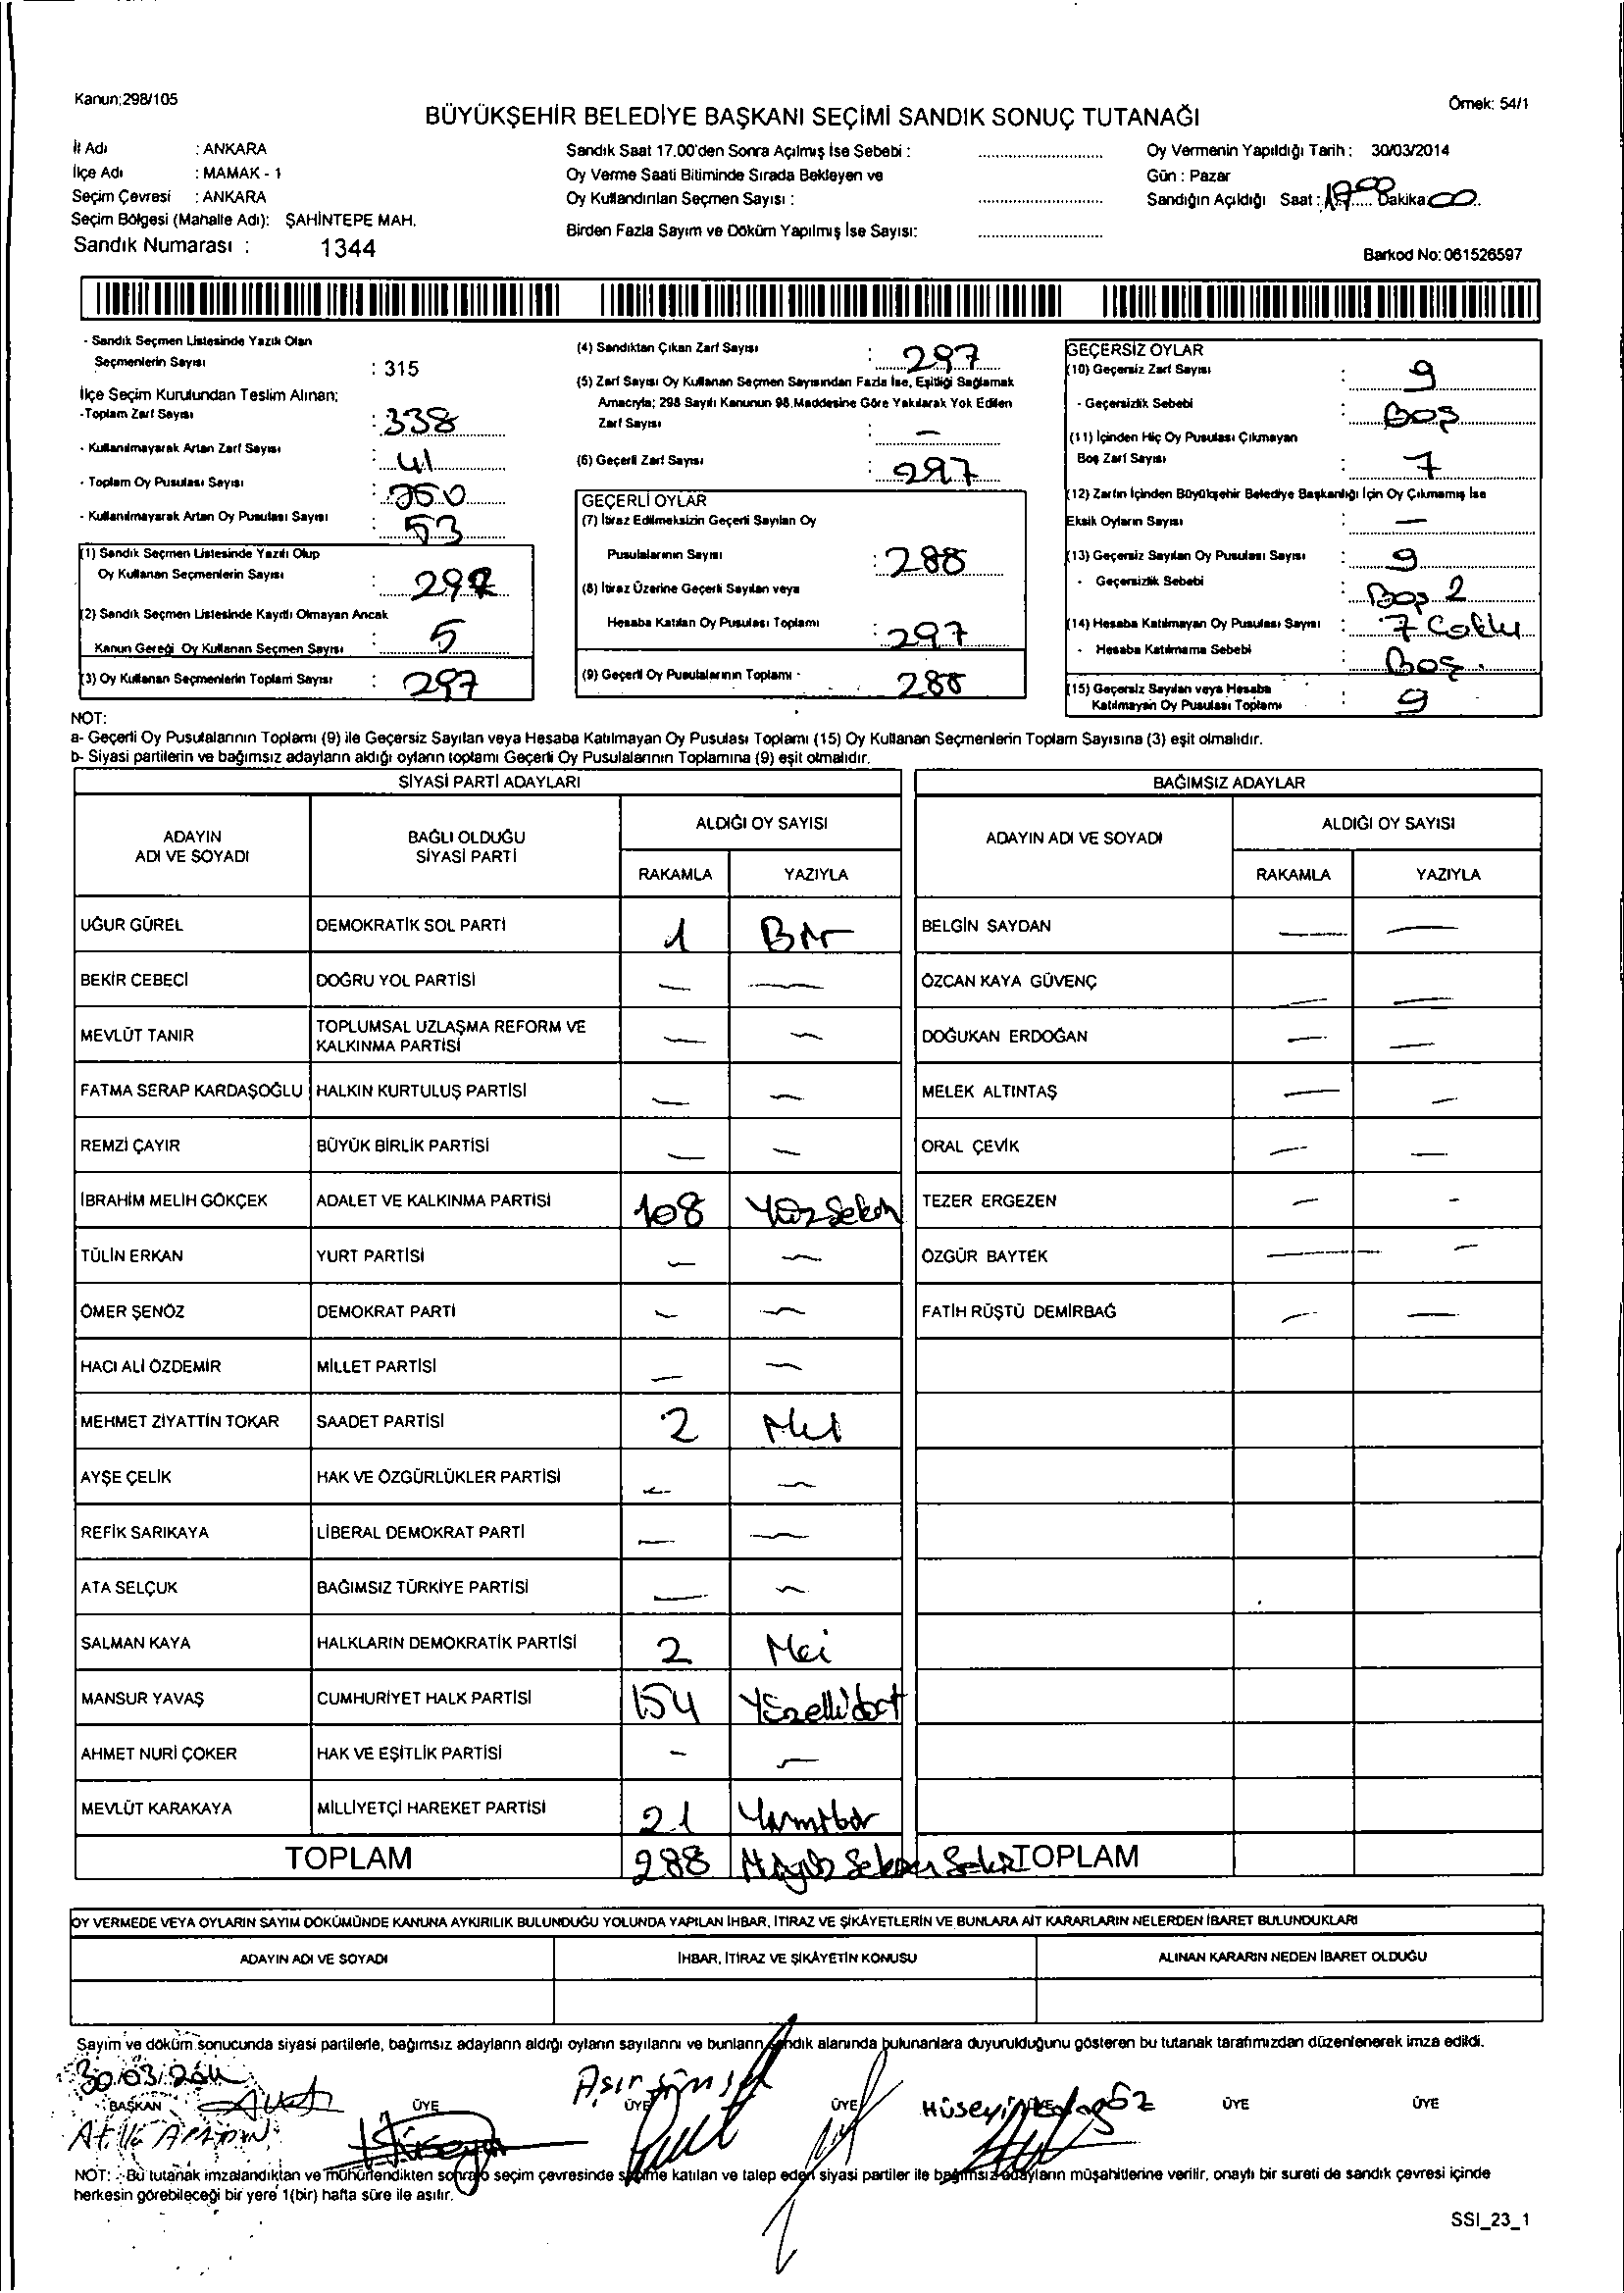 Kanun;298/105
Örnek: 54/1
BÜYÜKŞEHİR BELEDİYE BAŞKANI SEÇİMİ SANDIK SONUÇ TUTANAĞI
İl Adı : ANKARA
İlçe Adı : MAMAK - 1
Seçim Çevresi : ANKARA
Seçim Bölgesi (Mahalle Adı): ŞAHİNTEPE MAH.
Sandık Numarası : 1344
Sandık Saat 17.00'den Sonra Açılmış İse Sebebi :
Oy Verme Saati Bitiminde Sırada Bekleyen ve
Oy Kullandırılan Seçmen Sayısı :
Birden Fazla Sayım ve Döküm Yapılmış İse Sayısı:
Oy Vermenin Yapıldığı Tarih : 30/03/2014
Gün : Pazar
Sandığın Açıldığı Saat : Dakika 00
Barkod No: 061526597
- Sandık Seçmen Listesinde Yazılı Olan
Seçmenlerin Sayısı : 315
İlçe Seçim Kurulundan Teslim Alınan;
-Toplam Zarf Sayısı : 338
- Kullanılmayarak Artan Zarf Sayısı : 41
- Toplam Oy Pusulası Sayısı : 350
- Kullanılmayarak Artan Oy Pusulası Sayısı : 53
(1) Sandık Seçmen Listesinde Yazılı Olup
Oy Kullanan Seçmenlerin Sayısı :
(2) Sandık Seçmen Listesinde Kayıtlı Olmayan Ancak
Kanun Gereği Oy Kullanan Seçmen Sayısı : 5
(3) Oy Kullanan Seçmenlerin Toplam Sayısı : 297
(4) Sandıktan Çıkan Zarf Sayısı : 297
(5) Zarf Sayısı Oy Kullanan Seçmen Sayısından Fazla İse, Eşitliği Sağlamak
Amacıyla; 298 Sayılı Kanunun 98.Maddesine Göre Yakılarak Yok Edilen
Zarf Sayısı : -
(6) Geçerli Zarf Sayısı : 297
GEÇERLİ OYLAR
(7) İtiraz Edilmeksizin Geçerli Sayılan Oy
Pusulalarının Sayısı : 288
(8) İtiraz Üzerine Geçerli Sayılan veya
Hesaba Katılan Oy Pusulası Toplamı : 297
(9) Geçerli Oy Pusulalarının Toplamı - 288
GEÇERSİZ OYLAR
(10) Geçersiz Zarf Sayısı : 9
- Geçersizlik Sebebi : Boş
(11) İçinden Hiç Oy Pusulası Çıkmayan
Boş Zarf Sayısı : 7
(12) Zarfın İçinden Büyükşehir Belediye Başkanlığı İçin Oy Çıkmamış İse
Eksik Oyların Sayısı : -
(13) Geçersiz Sayılan Oy Pusulası Sayısı : 9
- Geçersizlik Sebebi : Boş 2
(14) Hesaba Katılmayan Oy Pusulası Sayısı : 7 Coklu
- Hesaba Katılmama Sebebi : Boş.
(15) Geçersiz Sayılan veya Hesaba
Katılmayan Oy Pusulası Toplamı : 9
NOT:
a- Geçerli Oy Pusulalarının Toplamı (9) ile Geçersiz Sayılan veya Hesaba Katılmayan Oy Pusulası Toplamı (15) Oy Kullanan Seçmenlerin Toplam Sayısına (3) eşit olmalıdır.
b- Siyasi partilerin ve bağımsız adayların aldığı oyların toplamı Geçerli Oy Pusulalarının Toplamına (9) eşit olmalıdır.
SİYASİ PARTİ ADAYLARI
BAĞIMSIZ ADAYLAR
ADAYIN
ADI VE SOYADI
BAĞLI OLDUĞU
SİYASİ PARTİ
ALDIĞI OY SAYISI
RAKAMLA YAZIYLA
ADAYIN ADI VE SOYADI
ALDIĞI OY SAYISI
RAKAMLA YAZIYLA
UĞUR GÜREL DEMOKRATİK SOL PARTİ 1 Bir BELGİN SAYDAN - -
BEKİR CEBECİ DOĞRU YOL PARTİSİ - - ÖZCAN KAYA GÜVENÇ - -
MEVLÜT TANIR TOPLUMSAL UZLAŞMA REFORM VE
KALKINMA PARTİSİ - - DOĞUKAN ERDOĞAN - -
FATMA SERAP KARDAŞOĞLU HALKIN KURTULUŞ PARTİSİ - - MELEK ALTINTAŞ - -
REMZİ ÇAYIR BÜYÜK BİRLİK PARTİSİ - - ORAL ÇEVİK - -
İBRAHİM MELİH GÖKÇEK ADALET VE KALKINMA PARTİSİ 108 Yüz Sekiz TEZER ERGEZEN - -
TÜLİN ERKAN YURT PARTİSİ - - ÖZGÜR BAYTEK - -
ÖMER ŞENÖZ DEMOKRAT PARTİ - - FATİH RÜŞTÜ DEMİRBAĞ - -
HACI ALİ ÖZDEMİR MİLLET PARTİSİ - -
MEHMET ZİYATTİN TOKAR SAADET PARTİSİ 2
AYŞE ÇELİK HAK VE ÖZGÜRLÜKLER PARTİSİ - -
REFİK SARIKAYA LİBERAL DEMOKRAT PARTİ - -
ATA SELÇUK BAĞIMSIZ TÜRKİYE PARTİSİ - -
SALMAN KAYA HALKLARIN DEMOKRATİK PARTİSİ 2
MANSUR YAVAŞ CUMHURİYET HALK PARTİSİ 154 Yüzellidört
AHMET NURİ ÇOKER HAK VE EŞİTLİK PARTİSİ - -
MEVLÜT KARAKAYA MİLLİYETÇİ HAREKET PARTİSİ 21 Yirmibir
TOPLAM 288 TOPLAM
OY VERMEDE VEYA OYLARIN SAYIM DÖKÜMÜNDE KANUNA AYKIRILIK BULUNDUĞU YOLUNDA YAPILAN İHBAR, İTİRAZ VE ŞİKÂYETLERİN VE BUNLARA AİT KARARLARIN NELERDEN İBARET BULUNDUKLARI
ADAYIN ADI VE SOYADI İHBAR, İTİRAZ VE ŞİKÂYETİN KONUSU ALINAN KARARIN NEDEN İBARET OLDUĞU
Sayım ve döküm sonucunda siyasi partilerle, bağımsız adayların aldığı oyların sayılarını ve bunların sandık alanında bulunanlara duyurulduğunu gösteren bu tutanak tarafımızdan düzenlenerek imza edildi.
30/03/2014
BAŞKAN ÜYE ÜYE ÜYE ÜYE ÜYE
Atilla
Hüseyin
NOT: - Bu tutanak imzalandıktan ve mühürlendikten sonra o seçim çevresinde seçime katılan ve talep eden siyasi partiler ile bağımsız adayların müşahitlerine verilir, onaylı bir sureti de sandık çevresi içinde
herkesin görebileceği bir yere 1(bir) hafta süre ile asılır.
SSI_23_1